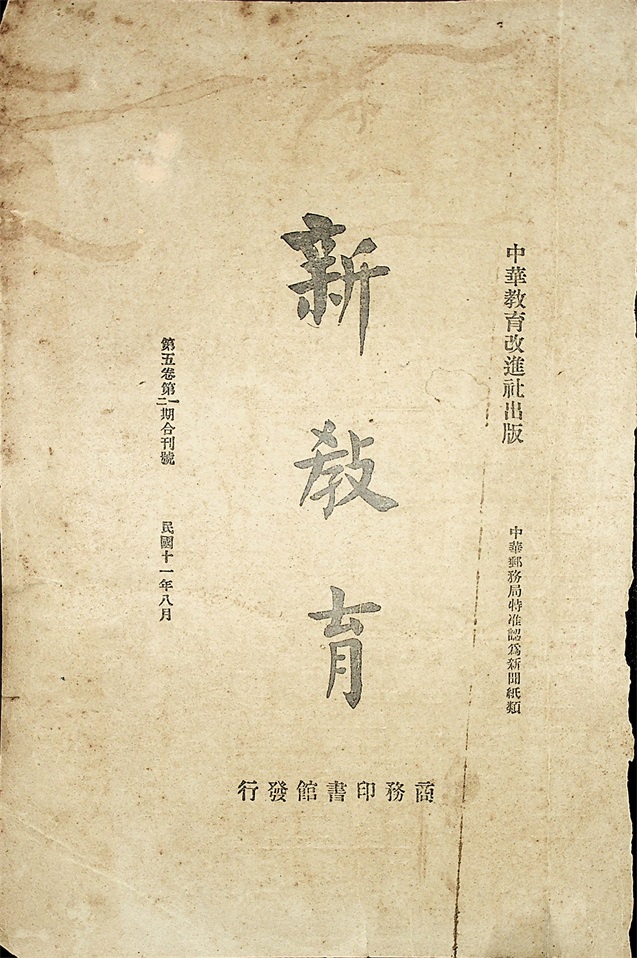 中華教育改進社出版
中華郵務局特准認爲新聞紙類
新教育
第五卷第一二期合刊號
民國十一年八月
商務印書館發行